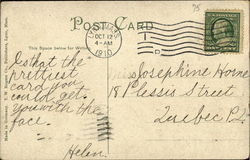 POST CARD
This Space below for
OCT 12
4-AM
1910
Is that the
prettiest
card you
could get
you with the
face.
Helen
Miss Josephine Horne
18 Plessis Street
Quebec P.Q.